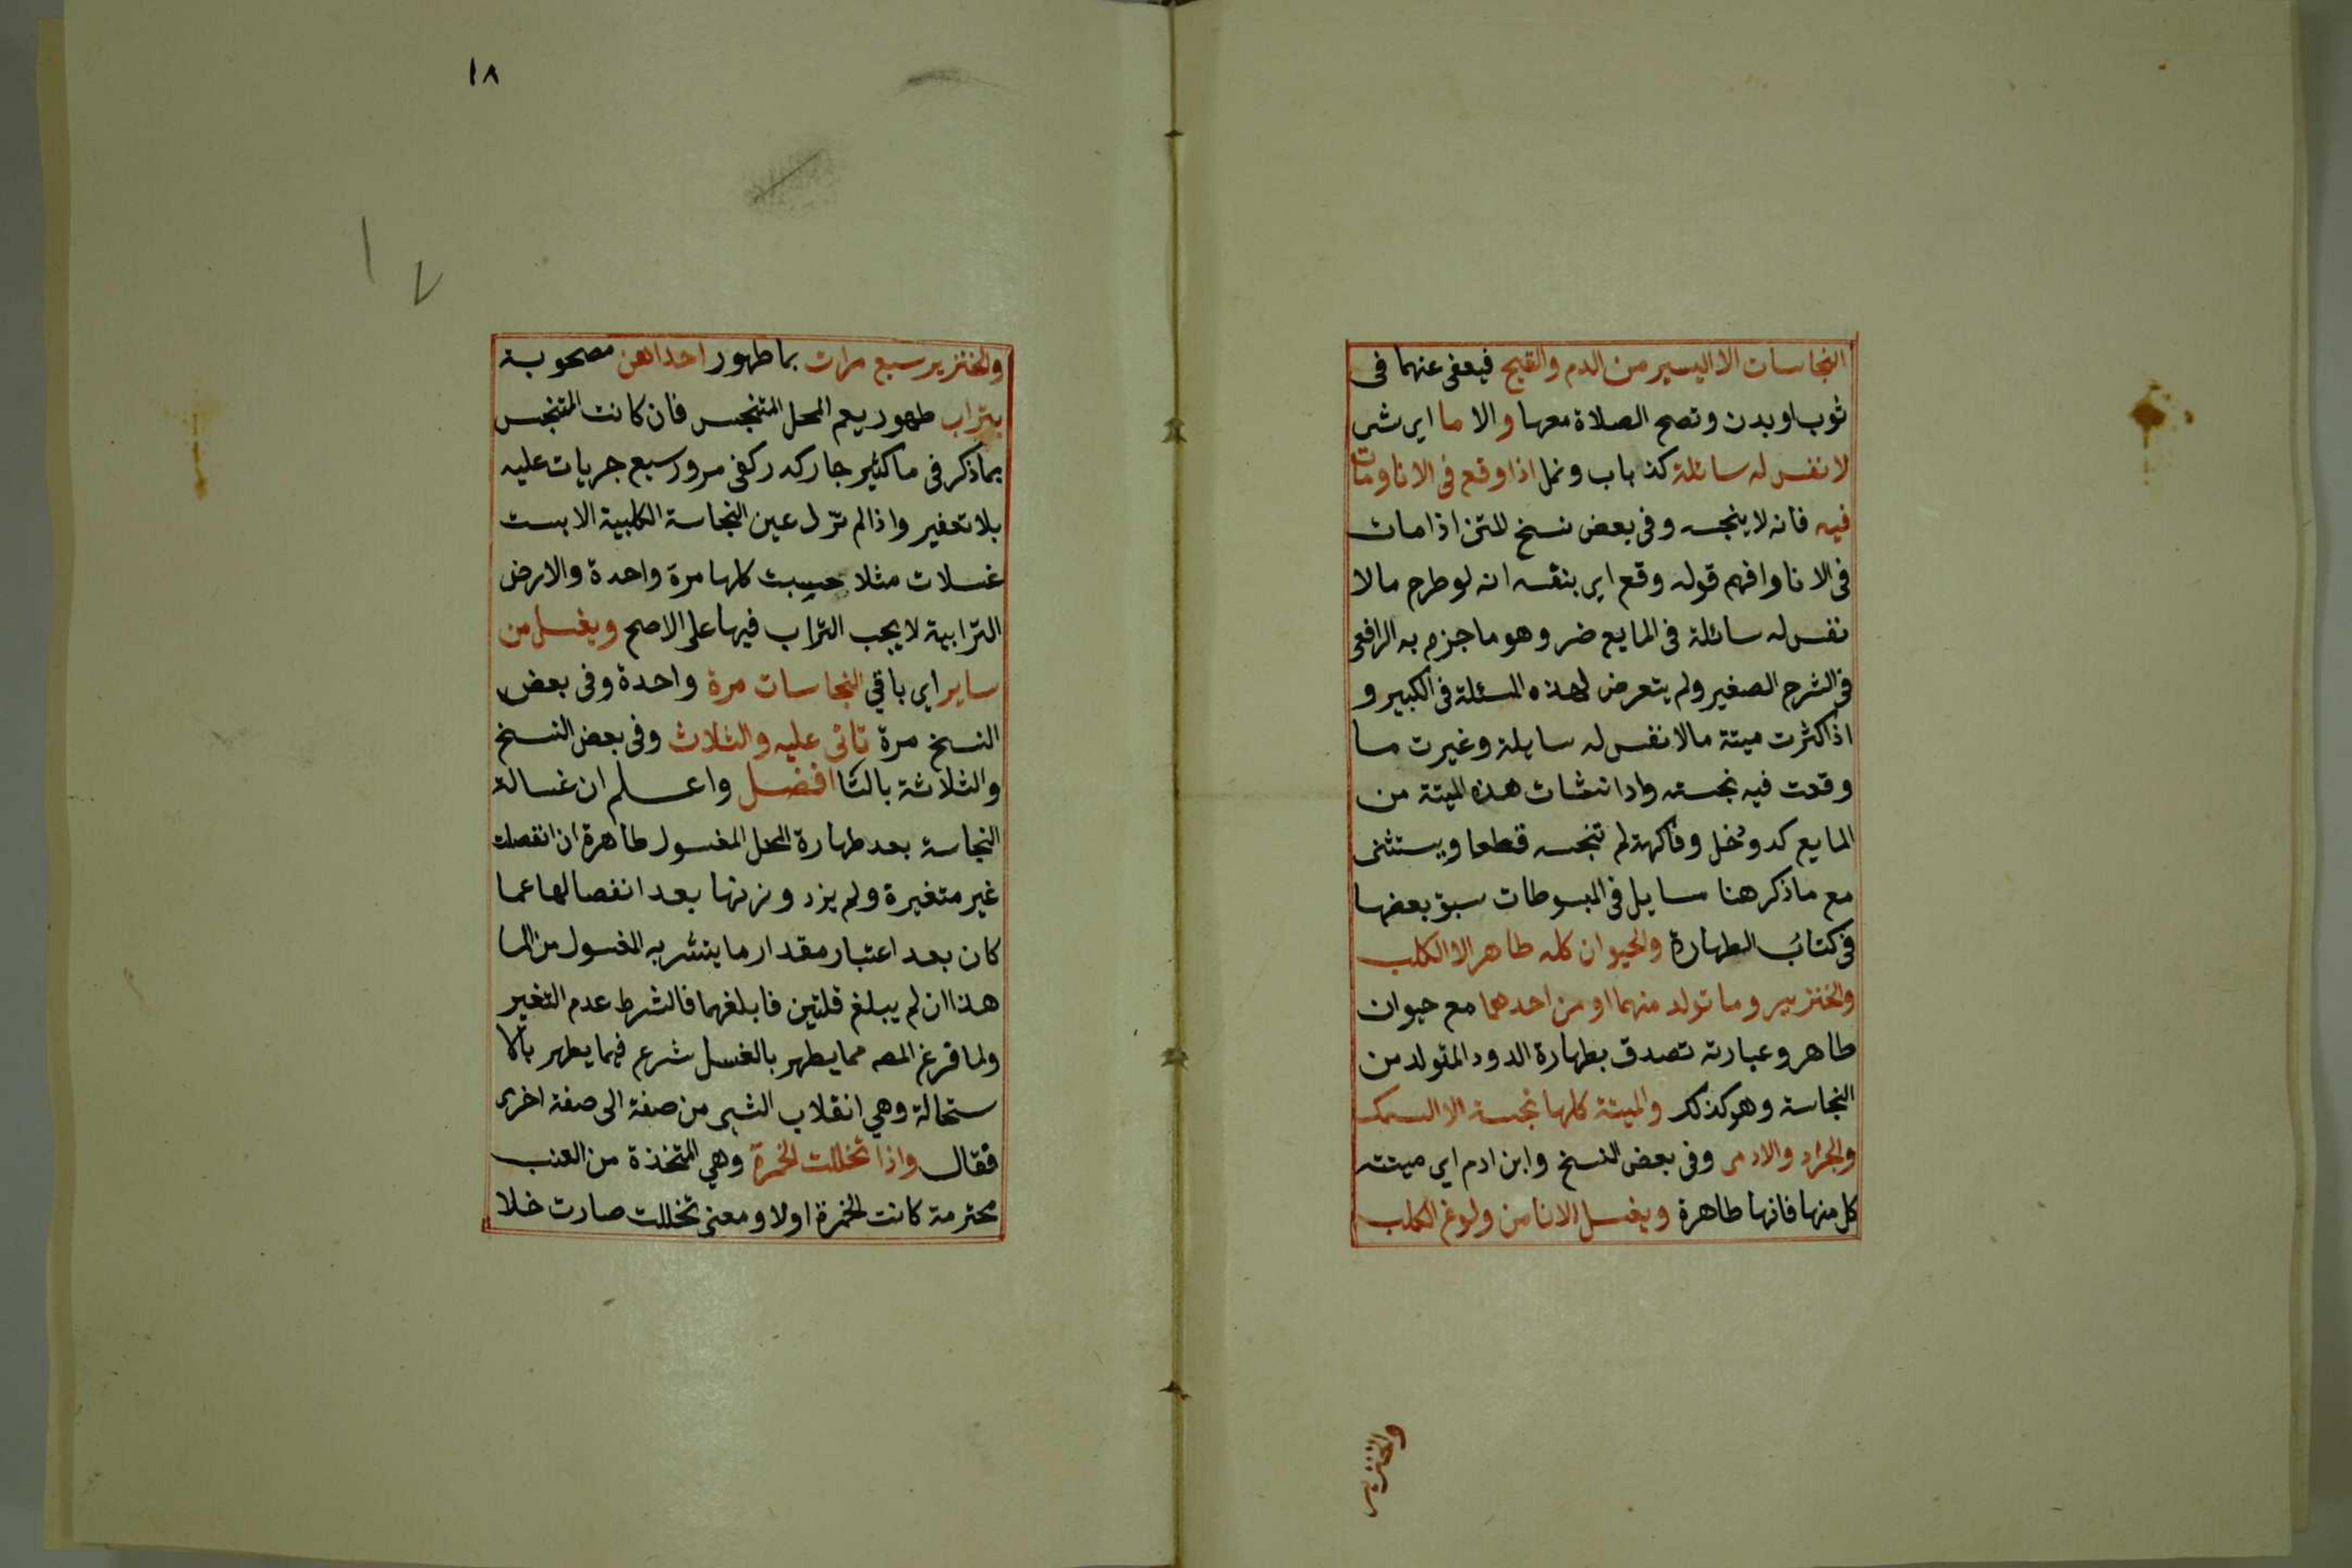 النجاسات الا اليسير من الدم والقيح فيعفى عنهما فى
ثوب او بدن وتصح الصلاة معها والا ما اي شى
لا نفس له سائلة كذباب ونمل اذا وقع فى الانا ومات
فيه فانه لا ينجسه وفى بعض نسخ المتن اذا مات
فى الانا وافهم قوله وقع اي بنفسه انه لو طرح مالا
نفس له سائلة فى المايع ضر وهو ما جزم به الرافعى
فى الشرح الصغير ولم يتعرض لهذه المسئلة فى الكبير و
اذا كثرت ميتة مالا نفس له سايلة وغيرت ما
وقعت فيه نجسته واذا نشات هذه الميتة من
المايع كدود خل وفاكهة لم تنجسه قطعا ويستثنى
مع ما ذكر هنا مسايل فى المبسوطات سبق بعضها
فى كتاب الطهارة والحيوان كله طاهر الا الكلب
والخنزير وما تولد منهما او من احدهما مع حيوان
طاهر وعبارته تصدق بطهارة الدود المتولد من
النجاسة وهو كذلك والميتة كلها نجسة الا السمك
والجراد والادمى وفى بعض النسخ وابن ادم اي ميتته
كل منها فانها طاهرة ويغسل الانا من ولوغ الكلب
والخنزير
١٨
١٧
والخنزير سبع مرات بما طهور احداهن مصحوبة
بتراب طهور يعم المحل المتنجس فان كانت المتنجس
بما ذكر فى ما كثير جار كدر كفى مرور سبع جريات عليه
بلا تعفير واذا لم تزل عين النجاسة الكلبية الا بست
غسلات مثلا حسبت كلها مرة واحدة والارض
الترابية لا يجب التراب فيها على الاصح ويغسل من
ساير اي باقي النجاسات مرة واحدة وفى بعض
النسخ مرة تاتى عليه والثلاث وفى بعض النسخ
والثلاثة بالتا افضل واعلم ان غسالة
النجاسة بعد طهارة المحل المغسول طاهرة ان انفصلت
غير متغيرة ولم يزد وزنها بعد انفصالها عما
كان بعد اعتبار مقدار ما يتشربه المغسول من الما
هذا ان لم يبلغ قلتين فا بلغهما فالشرط عدم التغير
ولما فرغ المصه مما يطهر بالغسل شرع فيما يطهر بالا
ستحالة وهي انقلاب الشى من صفة الى صفة اخرى
فقال واذا تخللت الخمرة وهي المتخذة من العنب
محترمة كانت الخمرة اولا ومعنى تخللت صارت خلا